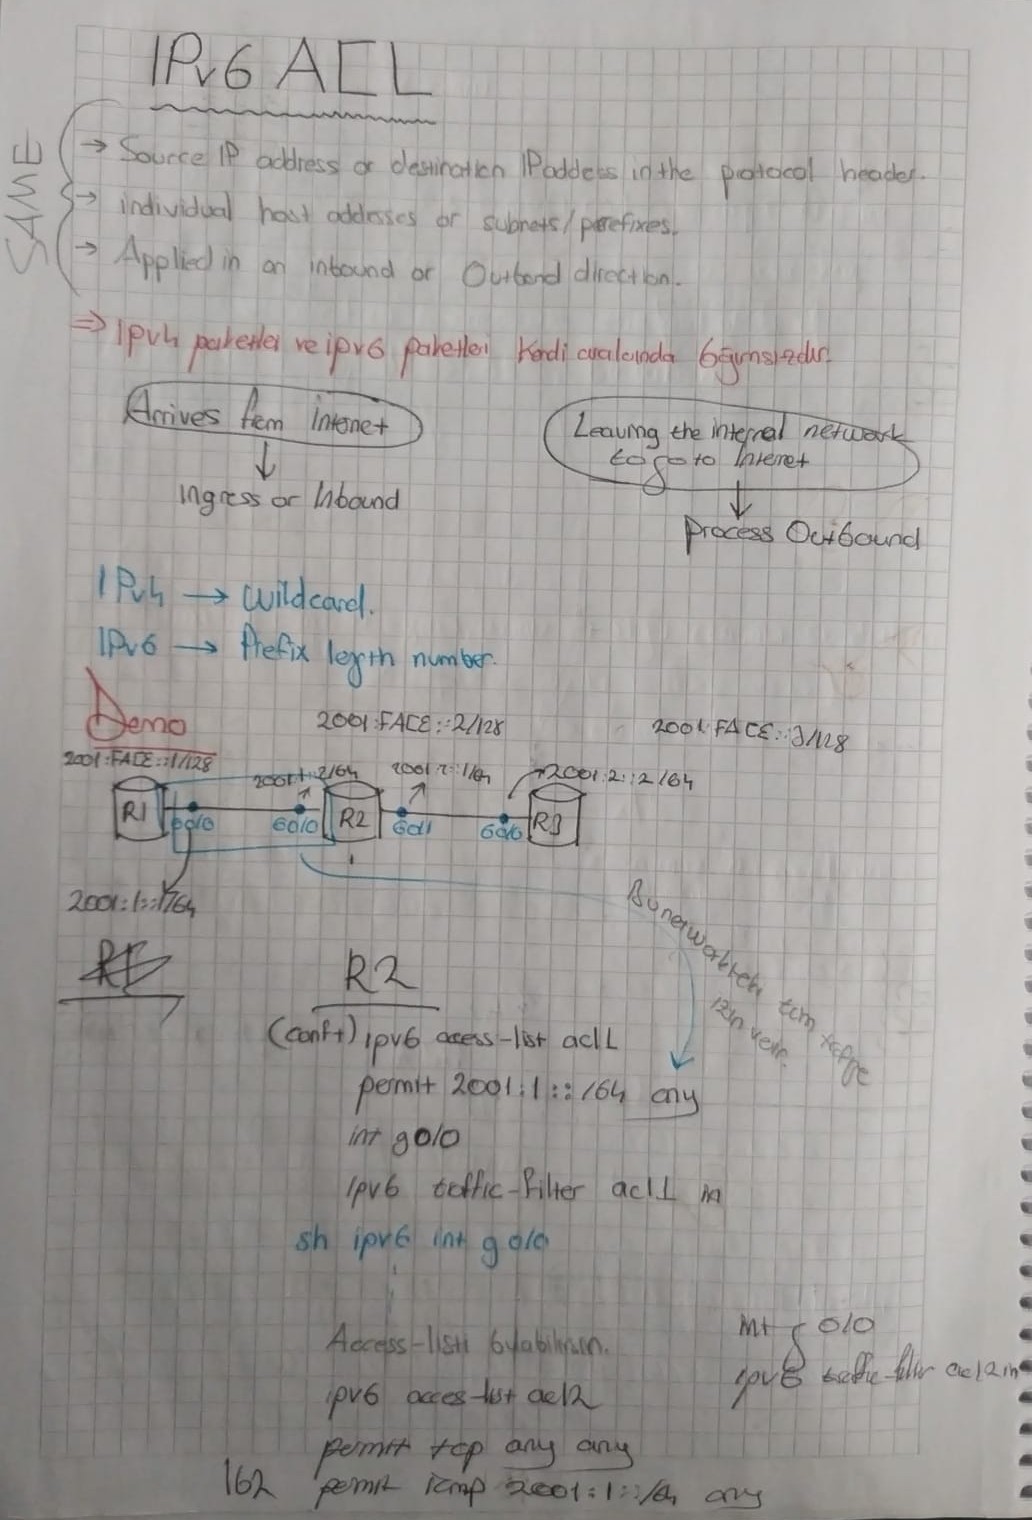 IPv6 ACL
SAME
→ Source IP address or destination IP addess in the protocol header.
→ individual host addresses or subnets/prefixes.
→ Applied in an inbound or Outbond direction.
⇒ Ipv4 paketler ve ipv6 paketleri Kendi aralarında bağımsızdır.
Arrives from Internet
Leaving the internal network
to go to Internet
Ingress or Inbound
Process Outbound
IPv4 → Wildcard.
IPv6 → Prefix length number.
Demo
2001:FACE::2/128
2001:FACE::3/128
2001:FACE::1/128
2001:1::2/64
2001:2::1/64
2001:2::2/64
R1
G0/0
G0/0
R2
G0/1
G0/0
R3
2001:1::1/64
Bu networkten tüm trafiğe
izin verir.
R2
(conf t) ipv6 access-list acl1
permit 2001:1::/64 any
int g0/0
ipv6 traffic-filter acl1 in
sh ipv6 int g0/0
Access-listi
ipv6 acces-list acl2
permit tcp any any
162 permit icmp 2001:1::/64 any
int g 0/0
ipv6 traffic-filter acl2 in